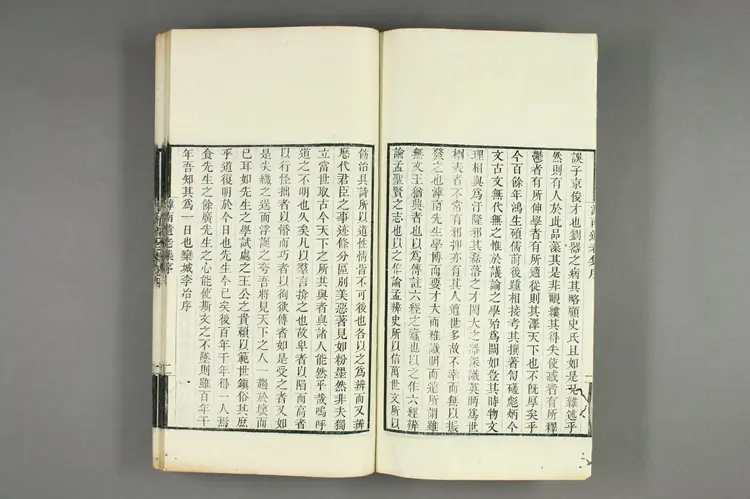 誤子京俊才也劉器之病其略顧史氏且如是況雜述乎
然則有人於此品藻其是非覼縷其得失使惑者有所釋
鬱者有所伸學者有所適從則其澤天下也不旣厚矣乎
今百餘年鴻生碩儒前後踵相接考其撰著訇磕彪炳今
文古文無代無之惟於議論之學殆爲闕如豈其時物文
理相與爲汙隆邪其磊落之才閎大之器深識英眄爲世
標表者不常有邪抑亦有其人遭世多故不幸而無以振
發之也滹南先生學博而要才大而雅識明而遠所謂雖
無文王猶興者也以爲傳註六經之蠹也以之作六經辨
論孟聖賢之志也以之作論孟辨史所以信萬世文所以
飭治具詩所以道性情皆不可後也各以之爲辨而又辨
歷代君臣之事迹條分區別美惡著見如粉墨然非夫獨
立當世取古今天下之所共與者與諸人能然乎哉嗚呼
道之不明也久矣凡以羣言揜之也故卑者以陷而高者
以行怪拙者以惛而巧者以徇欲傳者如是受之者又如
是夫機之逞而浮誕之夸吾將見天下之人一趨於壞而
已耳如先生之學試處之王公之貴賴以範世鎭俗其庶
乎道復明於今日也先生今已矣後百年千年得一人焉
食先生之餘廣先生之心能使斯文之不墜則雖百年千
年吾知其爲一日也欒城李冶序
滹南遺老集序